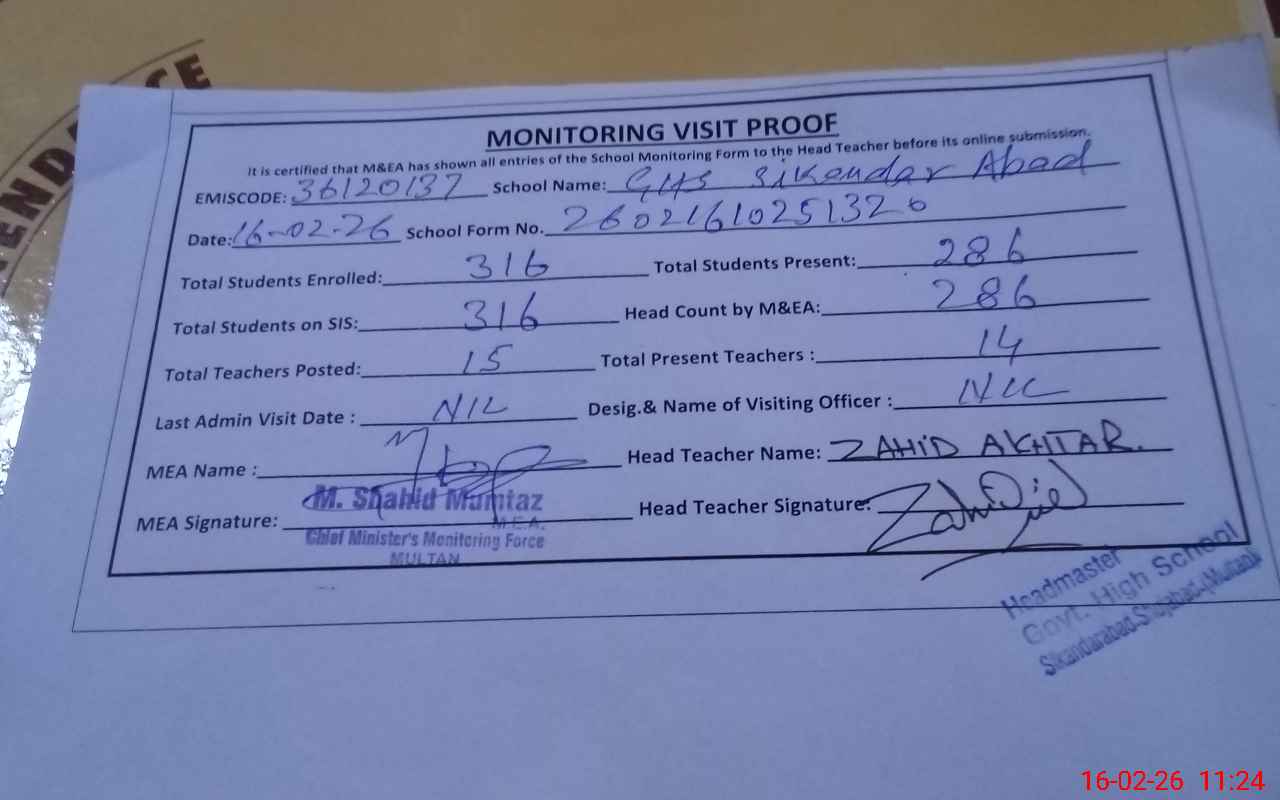 MONITORING VISIT PROOF
It is certified that M&EA has shown all entries of the School Monitoring Form to the Head Teacher before its online submission.
EMISCODE: 36120137 School Name: GHS Sikandar Abad
Date: 16-02-26 School Form No. 26021610251320
Total Students Enrolled: 316 Total Students Present: 286
Total Students on SIS: 316 Head Count by M&EA: 286
Total Teachers Posted: 15 Total Present Teachers : 14
Last Admin Visit Date : NIL Desig.& Name of Visiting Officer : NIL
MEA Name : Head Teacher Name: ZAHID AKHTAR.
M. Shahid Mumtaz
MEA Signature: Head Teacher Signature:
M.E.A.
Chief Minister's Monitoring Force
MULTAN
Headmaster
Govt. High School
Sikandarabad, Shujabad (Multan)
16-02-26 11:24